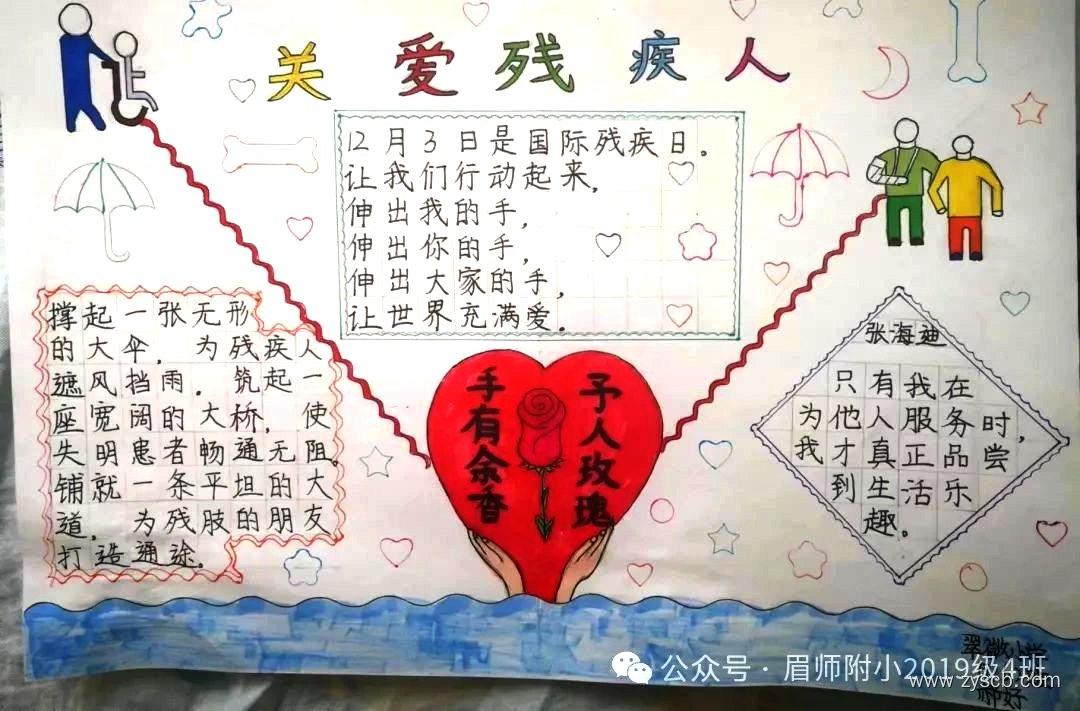 关爱残疾人
12月3日是国际残疾日。
让我们行动起来，
伸出我的手，
伸出你的手，
伸出大家的手，
让世界充满爱。
撑起一张无形
的大伞，为残疾人
遮风挡雨。筑起一
座宽阔的大桥，使
失明患者畅通无阻。
铺就一条平坦的大
道，为残肢的朋友
打造通途。
予人玫瑰
手有余香
张海迪
只有我在
为他人服务时，
我才真正品尝
到生活乐
趣。
翠微小学
公众号·眉师附小2019级4班
www.zyscb.com